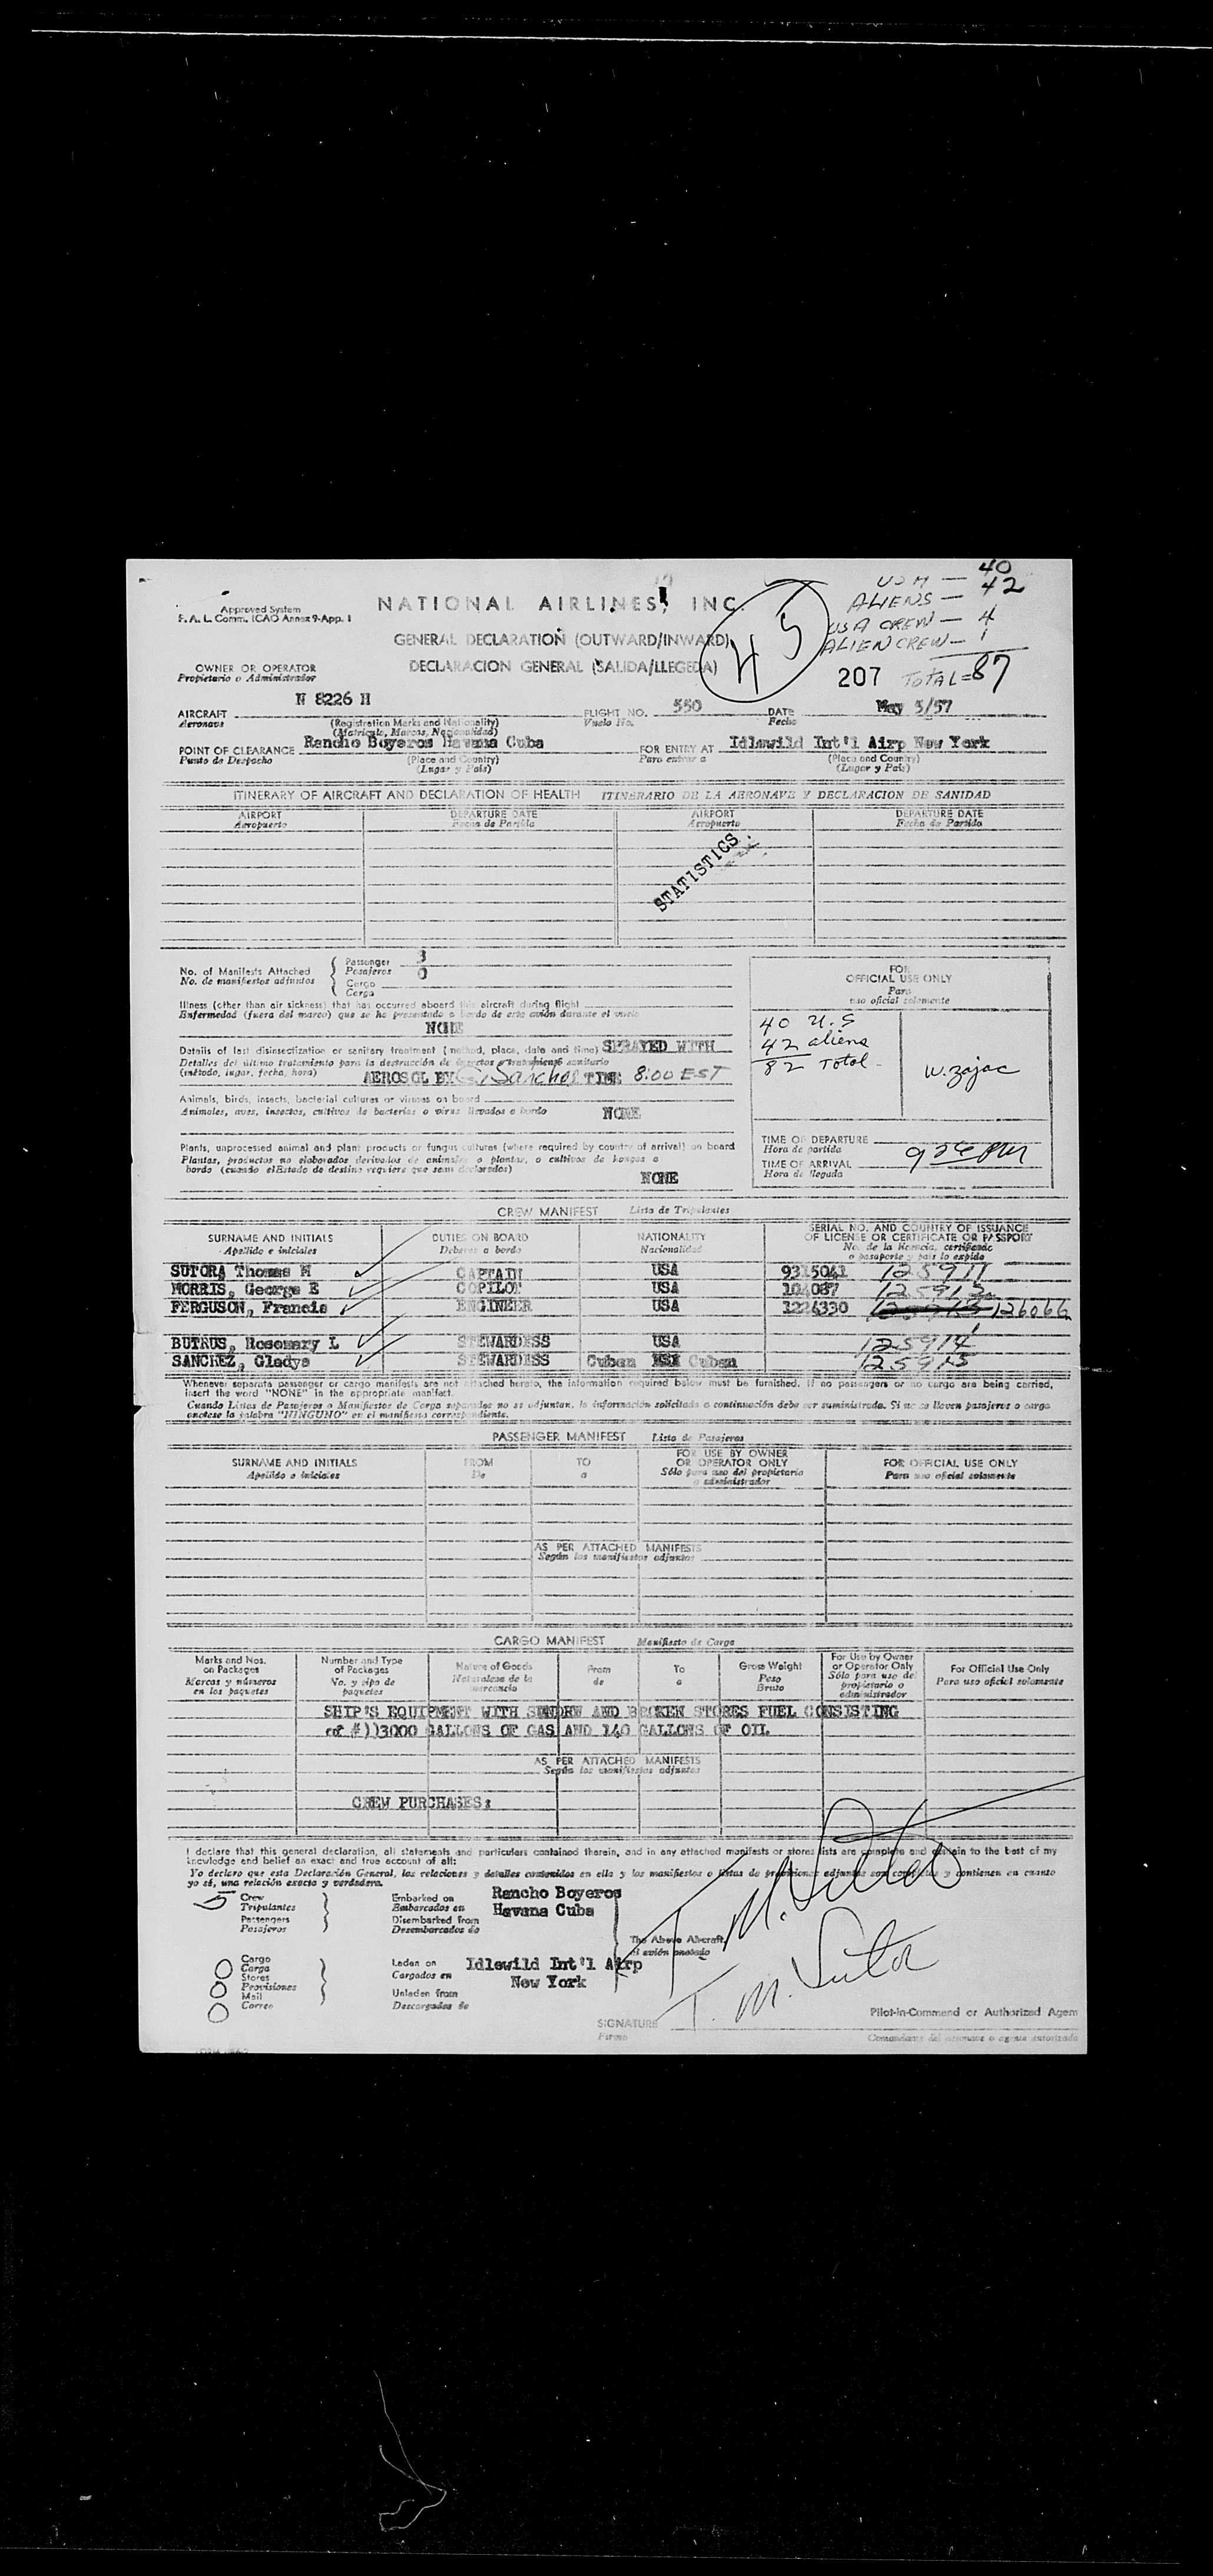 40
USA — 42
ALIENS —
USA CREW — 4
ALIEN CREW — 1
TOTAL = 87
Approved System
F. A. L. Comm. ICAO Annex 9-App. 1
NATIONAL AIRLINES, INC.
45
GENERAL DECLARATION (OUTWARD/INWARD)
DECLARACION GENERAL (SALIDA/LLEGEDA)
207
OWNER OR OPERATOR
Propietario o Administrador
AIRCRAFT N 8226 H FLIGHT NO. 550 DATE May 5/57
Aeronave (Registration Marks and Nationality) Vuelo No. Fecha
(Matricula, Marcas, Nacionalidad)
POINT OF CLEARANCE Rancho Boyeros Havana Cuba FOR ENTRY AT Idlewild Int'l Airp New York
Punto de Despacho (Place and Country) Para entrar a (Place and Country)
(Lugar y Pais) (Lugar y Pais)
ITINERARY OF AIRCRAFT AND DECLARATION OF HEALTH ITINERARIO DE LA AERONAVE Y DECLARACION DE SANIDAD
AIRPORT DEPARTURE DATE AIRPORT DEPARTURE DATE
Aeropuerto Fecha de Partida Aeropuerto Fecha de Partida
STATISTICS
No. of Manifests Attached Passenger 3
No. de manifiestos adjuntos Pasajeros 0
Cargo
Carga
FOR
OFFICIAL USE ONLY
Para
uso oficial solamente
40 U.S
42 aliens
82 Total
W. Zajac
Illness (other than air sickness) that has occurred aboard this aircraft during flight
Enfermedad (fuera del mareo) que se ha presentado a bordo de este avión durante el vuelo
NONE
Details of last disinsectization or sanitary treatment (method, place, date and time) SPRAYED WITH
Detalles del último tratamiento para la destrucción de insectos o tratamiento sanitario
(método, lugar, fecha, hora) AEROSOL BY G. Sanchez TIME 8:00 EST
Animals, birds, insects, bacterial cultures or viruses on board
Animales, aves, insectos, cultivos de bacterias o virus llevados a bordo NONE
Plants, unprocessed animal and plant products or fungus cultures (where required by country of arrival) on board
Plantas, productos no elaborados derivados de animales o plantas, o cultivos de hongos a
bordo (cuando el Estado de destino requiere que sean declarados)
NONE
TIME OF DEPARTURE
Hora de partida
TIME OF ARRIVAL
Hora de llegada
CREW MANIFEST Lista de Tripulantes
SURNAME AND INITIALS DUTIES ON BOARD NATIONALITY SERIAL NO. AND COUNTRY OF ISSUANCE
OF LICENSE OR CERTIFICATE OR PASSPORT
Apellido e iniciales Deberes a bordo Nacionalidad No. de la licencia, certificado
o pasaporte y país lo expide
SUTORA Thomas M CAPTAIN USA 9315041 125911
MORRIS, George E COPILOT USA 104087 125913
FERGUSON, Francis ENGINEER USA 1224330 126066
BUTRUS, Rosemary L STEWARDESS USA 125914
SANCHEZ, Gladys STEWARDESS Cuban USA Cuban 125915
Whenever separate passenger or cargo manifests are not attached hereto, the information required below must be furnished. If no passengers or no cargo are being carried,
insert the word "NONE" in the appropriate manifest.
Cuando Listas de Pasajeros o Manifiestos de Carga separadas no se adjuntan, la información solicitada a continuación debe ser suministrada. Si no se llevan pasajeros o carga
anótese la palabra "NINGUNO" en el manifiesto correspondiente.
PASSENGER MANIFEST Lista de Pasajeros
SURNAME AND INITIALS FROM TO FOR USE BY OWNER OR OPERATOR ONLY FOR OFFICIAL USE ONLY
Apellido e iniciales De a Sólo para uso del propietario o administrador Para uso oficial solamente
AS PER ATTACHED MANIFESTS
Según los manifiestos adjuntos
CARGO MANIFEST Manifiesto de Carga
Marks and Nos. on Packages Number and Type of Packages Nature of Goods From To Gross Weight For Use by Owner or Operator Only For Official Use Only
Marcas y números en los paquetes No. y tipo de paquetes Naturaleza de la mercancia de a Peso Bruto Sólo para uso del propietario o administrador Para uso oficial solamente
SHIP'S EQUIPMENT WITH SUNDRY AND BROKEN STORES FUEL CONSISTING
of #))3000 GALLONS OF GAS AND 140 GALLONS OF OIL
AS PER ATTACHED MANIFESTS
Según los manifiestos adjuntos
CREW PURCHASES:
I declare that this general declaration, all statements and particulars contained therein, and in any attached manifests or stores lists are complete and contain to the best of my
knowledge and belief an exact and true account of all:
Yo declaro que esta Declaración General, las relaciones y detalles contenidos en ella y los manifiestos o listas de provisiones adjuntas son completas y contienen en cuanto
yo sé, una relación exacta y verdadera.
5 Crew Embarked on Rancho Boyeros
Tripulantes Embarcados en Havana Cuba
Passengers Disembarked from
Pasajeros Desembarcados de
The Above Aircraft
el avión anotado
0 Cargo Laden on Idlewild Int'l Airp
Carga Cargados en New York
0 Stores
Provisiones Unladen from
0 Mail Descargados de
Correo
T. M. Sutor
T. M. Sutor
SIGNATURE
Firma
Pilot-in-Command or Authorized Agent
Comandante del aeronave o agente autorizado